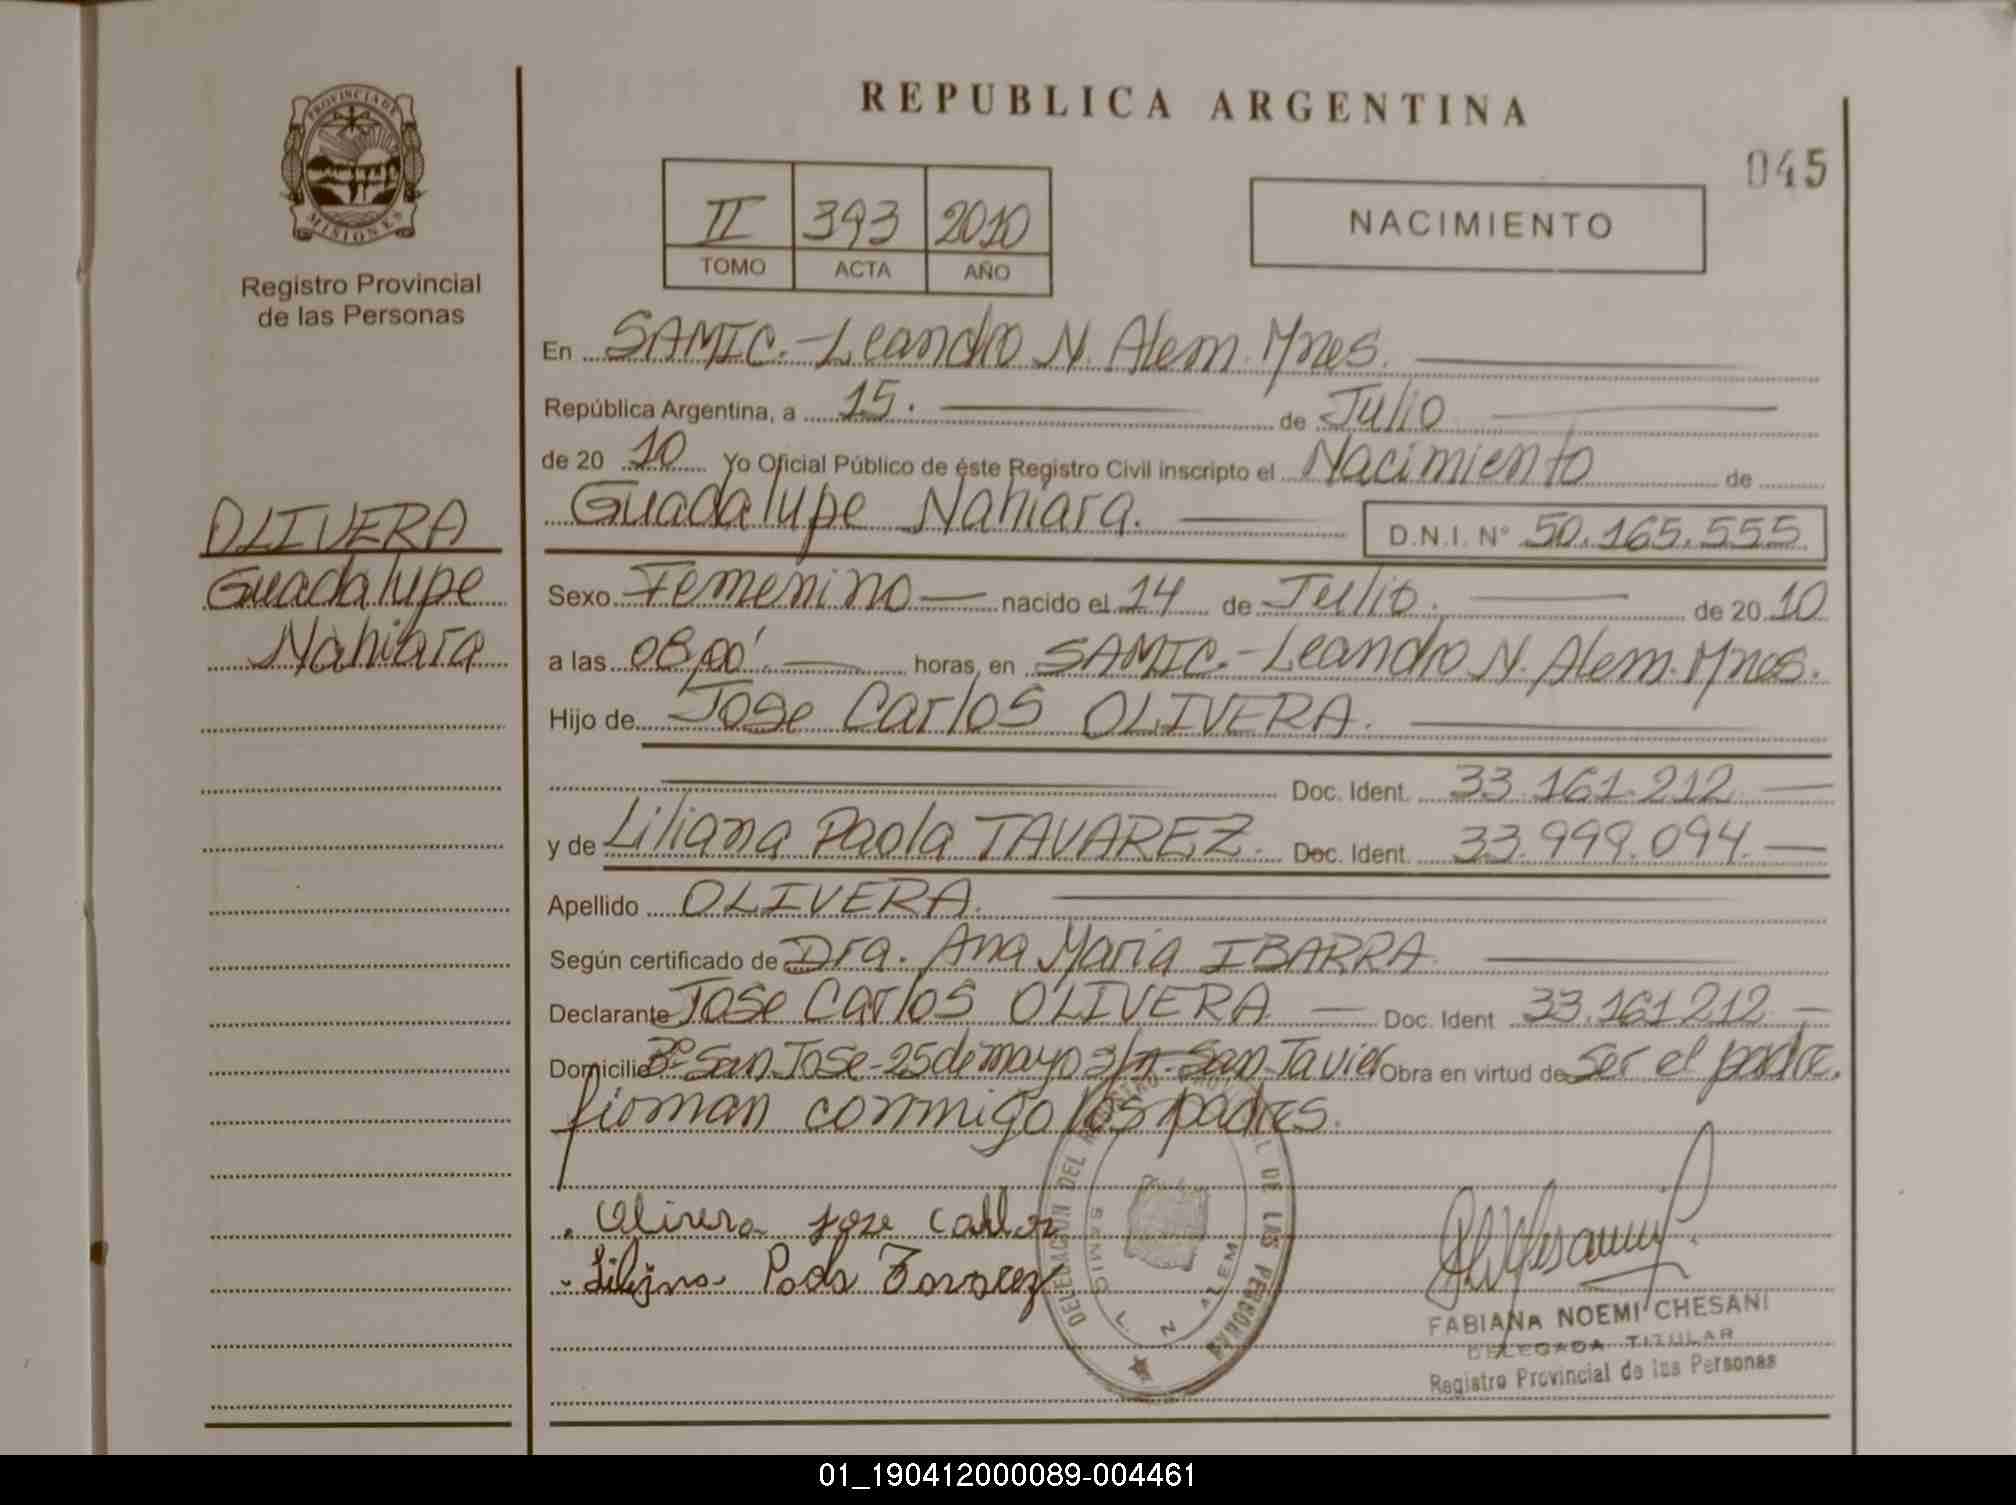 REPUBLICA ARGENTINA
045
PROVINCIA DE
MISIONES
Registro Provincial
de las Personas
II 393 2010
TOMO ACTA AÑO
NACIMIENTO
En SAMIC.-Leandro N. Alem. Mnes.
República Argentina, a 15. de Julio
de 20 10 Yo Oficial Público de éste Registro Civil inscripto el Nacimiento de
Guadalupe Nahiara. D.N.I. N° 50.165.555.
OLIVERA
Guadalupe
Nahiara
Sexo Femenino nacido el 14 de Julio. de 20 10
a las 08,00'. horas, en SAMIC.-Leandro N. Alem. Mnes.
Hijo de Jose Carlos OLIVERA.
Doc. Ident. 33.161.212
y de Liliana Paola TAVAREZ. Doc. Ident. 33.999.094.
Apellido OLIVERA.
Según certificado de Dra. Ana Maria IBARRA
Declarante Jose Carlos OLIVERA Doc. Ident 33.161212
Domicilio Bº San Jose-25 de mayo s/n-San Javier Obra en virtud de ser el padre.
firman conmigo los padres.
Olivera Jose
Paola Tavarez
DELEGACION DEL REGISTRO PROVINCIAL DE LAS PERSONAS
SAMIC L. N. ALEM
FABIANA NOEMI CHESANI
DELEGADA TITULAR
Registro Provincial de las Personas
01_190412000089-004461